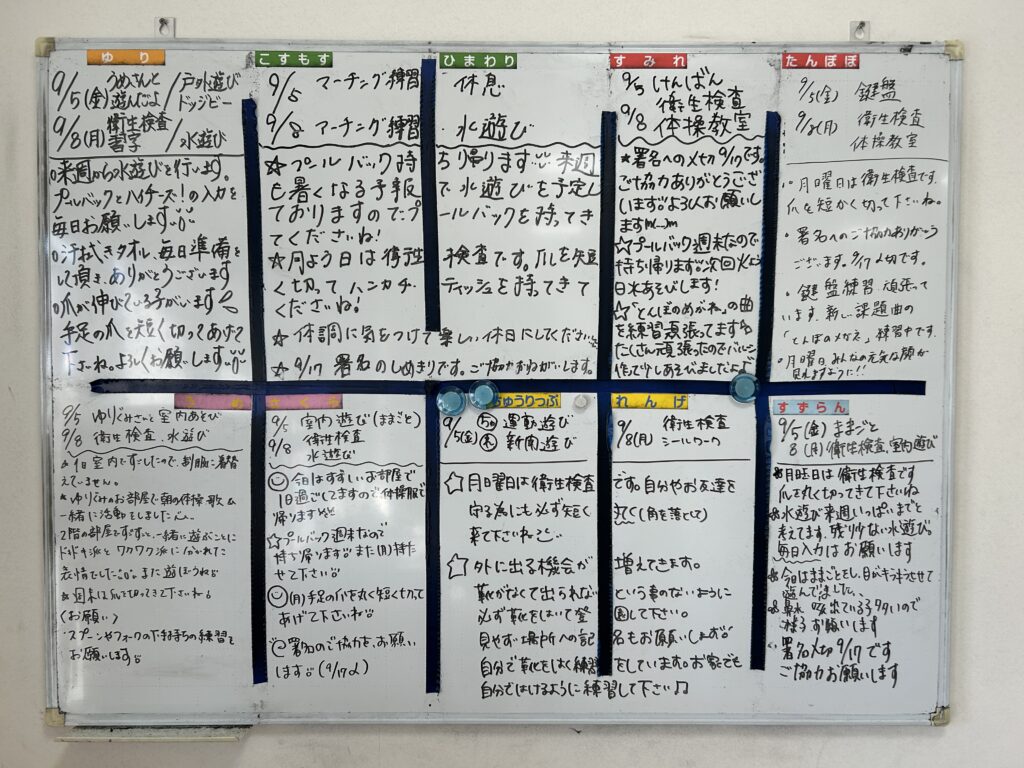 ゆり
9/5(金) うめさんと遊んだよ /戸外遊び ドッジビー
9/8(月) 衛生検査 習字 /水遊び
○来週から水遊びを行います。
プールバックとハイチーズ!の入力を
毎日お願いします
○汗拭きタオル、毎日準備を
して頂き、ありがとうございます
○爪が伸びている子がいます
手足の爪を短く切ってあげて
下さいね。よろしくお願いします
こすもす
9/5 マーチング練習
9/8 マーチング練習
ひまわり
休息
水遊び
☆プールバック持ち帰ります 来週
も暑くなる予報で水遊びを予定し
ておりますのでプールバックを持ってき
てくださいね!
☆月よう日は衛生検査です。爪を短
くきってハンカチ・ティッシュを持ってきて
くださいね!
☆体調に気をつけて楽しい休日にしてください
☆9/17 署名のしめきりです。ご協力おねがいします。
すみれ
9/5 けんばん
9/8 衛生検査 体操教室
★署名への〆切 9/17です。
ご協力ありがとうござ
います よろしくお願いし
ますm(_ _)m
☆プールバック週末なので
持ち帰ります 次回火よう
日水あそびします!
☆「とんぼのめがね」の曲
を練習頑張ってます
たくさん頑張ったのでバルーン
作って少しあそびましたよ♪
たんぽぽ
9/5(金) 鍵盤
9/8(月) 衛生検査
体操教室
・月曜日は衛生検査です。
爪を短かく切って下さいね。
・署名へのご協力ありがとう
ございます。9/17〆切です。
・鍵盤練習頑張って
います。新しい課題曲の
「とんぼのめがね」練習中です。
・月曜日みんなの元気な顔が
見れますように!!
うめ
9/5 ゆりぐみさんと室内あそび
9/8 衛生検査、水遊び
☆1日室内ですごしたので、お服に着替
えていません。
★ゆりぐみのお部屋で朝の体操、歌ム
一緒に活動をしました
2階の部屋でですと、一緒に遊ぶことに
ドキドキ派とワクワク派に分かれた
表情でした。また遊ぼうね
★週末に爪を切ってきて下さいね
(お願い)
・スプーンやフォークの下手持ちの練習を
お願いします
さくら
9/5 室内遊び(ままごと)
9/8 衛生検査
水遊び
今日はすずしいお部屋で
1日過ごしてますので体操服で
帰ります
☆プールバック週末なので
持ち帰ります また(月)持たせて
下さい
(月)手足の爪を丸く短く切って
あげて下さいね
署名のご協力を、お願い
します (9/17〆)
ちゅうりっぷ
9/5(金) もも 運動遊び
新聞遊び
れんげ
9/8(月) 衛生検査
シールワーク
☆月曜日は衛生検査です。自分やお友達を
守る為にも必ず短く丸く(角を落として)
来て下さいね
☆外に出る機会が増えてきます。
靴がなくて出られないという事のないように
必ず靴をはいて登園して下さい。
見やすい場所への記名もお願いします
自分で靴をはく練習をしています。お家でも
自分ではけるように練習して下さい♫
すずらん
9/5(金) ままごと
8(月) 衛生検査、室内遊び
月曜日は衛生検査です
爪を丸く切ってきて下さいね
水遊び来週いっぱいまでと
考えてます。残り少ない水遊び。
毎日入力はお願います
今日はままごとをし、目がキラキラさせて
遊んでました。
鼻水・咳出ている子多いので
様子お願いします
署名〆切 9/17です
ご協力お願いします